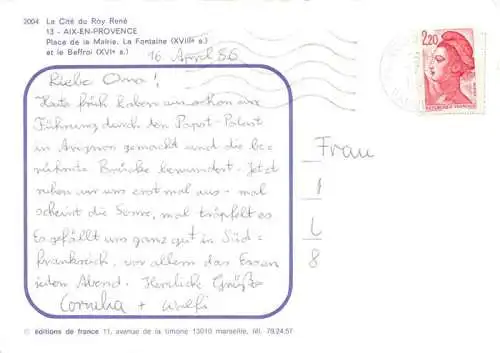 2004 La Cité du Roy René
13 - AIX-EN-PROVENCE
Place de la Mairie. La Fontaine (XVIIIe s.)
et le Beffroi (XVIe s.)
16 April 86
Liebe Oma!
Heute früh haben wir schon eine
Führung durch den Papst-Palast
in Avignon gemacht und die be=
rühmte Brücke bewundert. Jetzt
ruhen wir uns erst mal aus - mal
scheint die Sonne, mal tröpfelt es
Es gefällt uns ganz gut in Süd=
frankreich, vor allem das Essen
jeden Abend. Herzliche Grüße
Cornelia + Wolfi
2,20
REPUBLIQUE FRANÇAISE
Frau
I
L
8
© éditions de france 11, avenue de la timone 13010 marseille, tél. 79.24.57